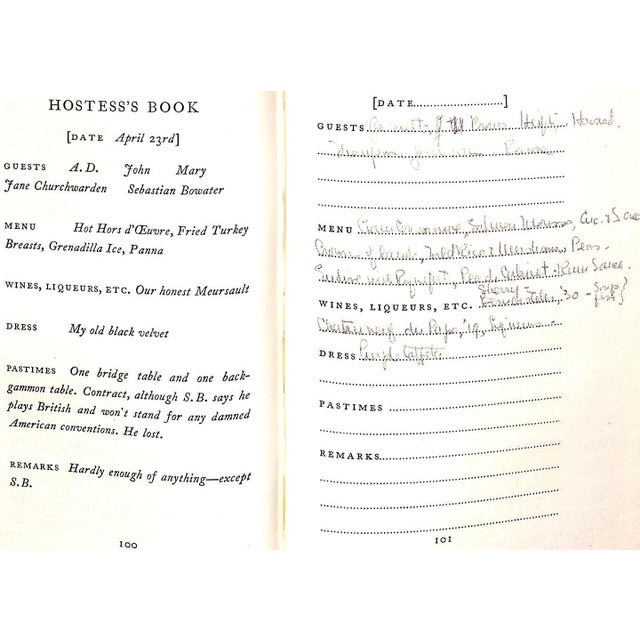 HOSTESS'S BOOK
[DATE April 23rd]
GUESTS A.D. John Mary
Jane Churchwarden Sebastian Bowater
MENU Hot Hors d'Œuvre, Fried Turkey
Breasts, Grenadilla Ice, Panna
WINES, LIQUEURS, ETC. Our honest Meursault
DRESS My old black velvet
PASTIMES One bridge table and one back-
gammon table. Contract, although S.B. says he
plays British and won't stand for any damned
American conventions. He lost.
REMARKS Hardly enough of anything—except
S.B.
100
[DATE....................]
GUESTS Howard
MENU Clam Consomme, Salmon Mousse, Cuc. & Sauce
of Lamb, Wild Rice & Peas
Sauce
Sherry - Soup
WINES, LIQUEURS, ETC. '30 - fish}
Chateauneuf du Pape, '19, Liqueurs
DRESS Purple
PASTIMES
REMARKS
101